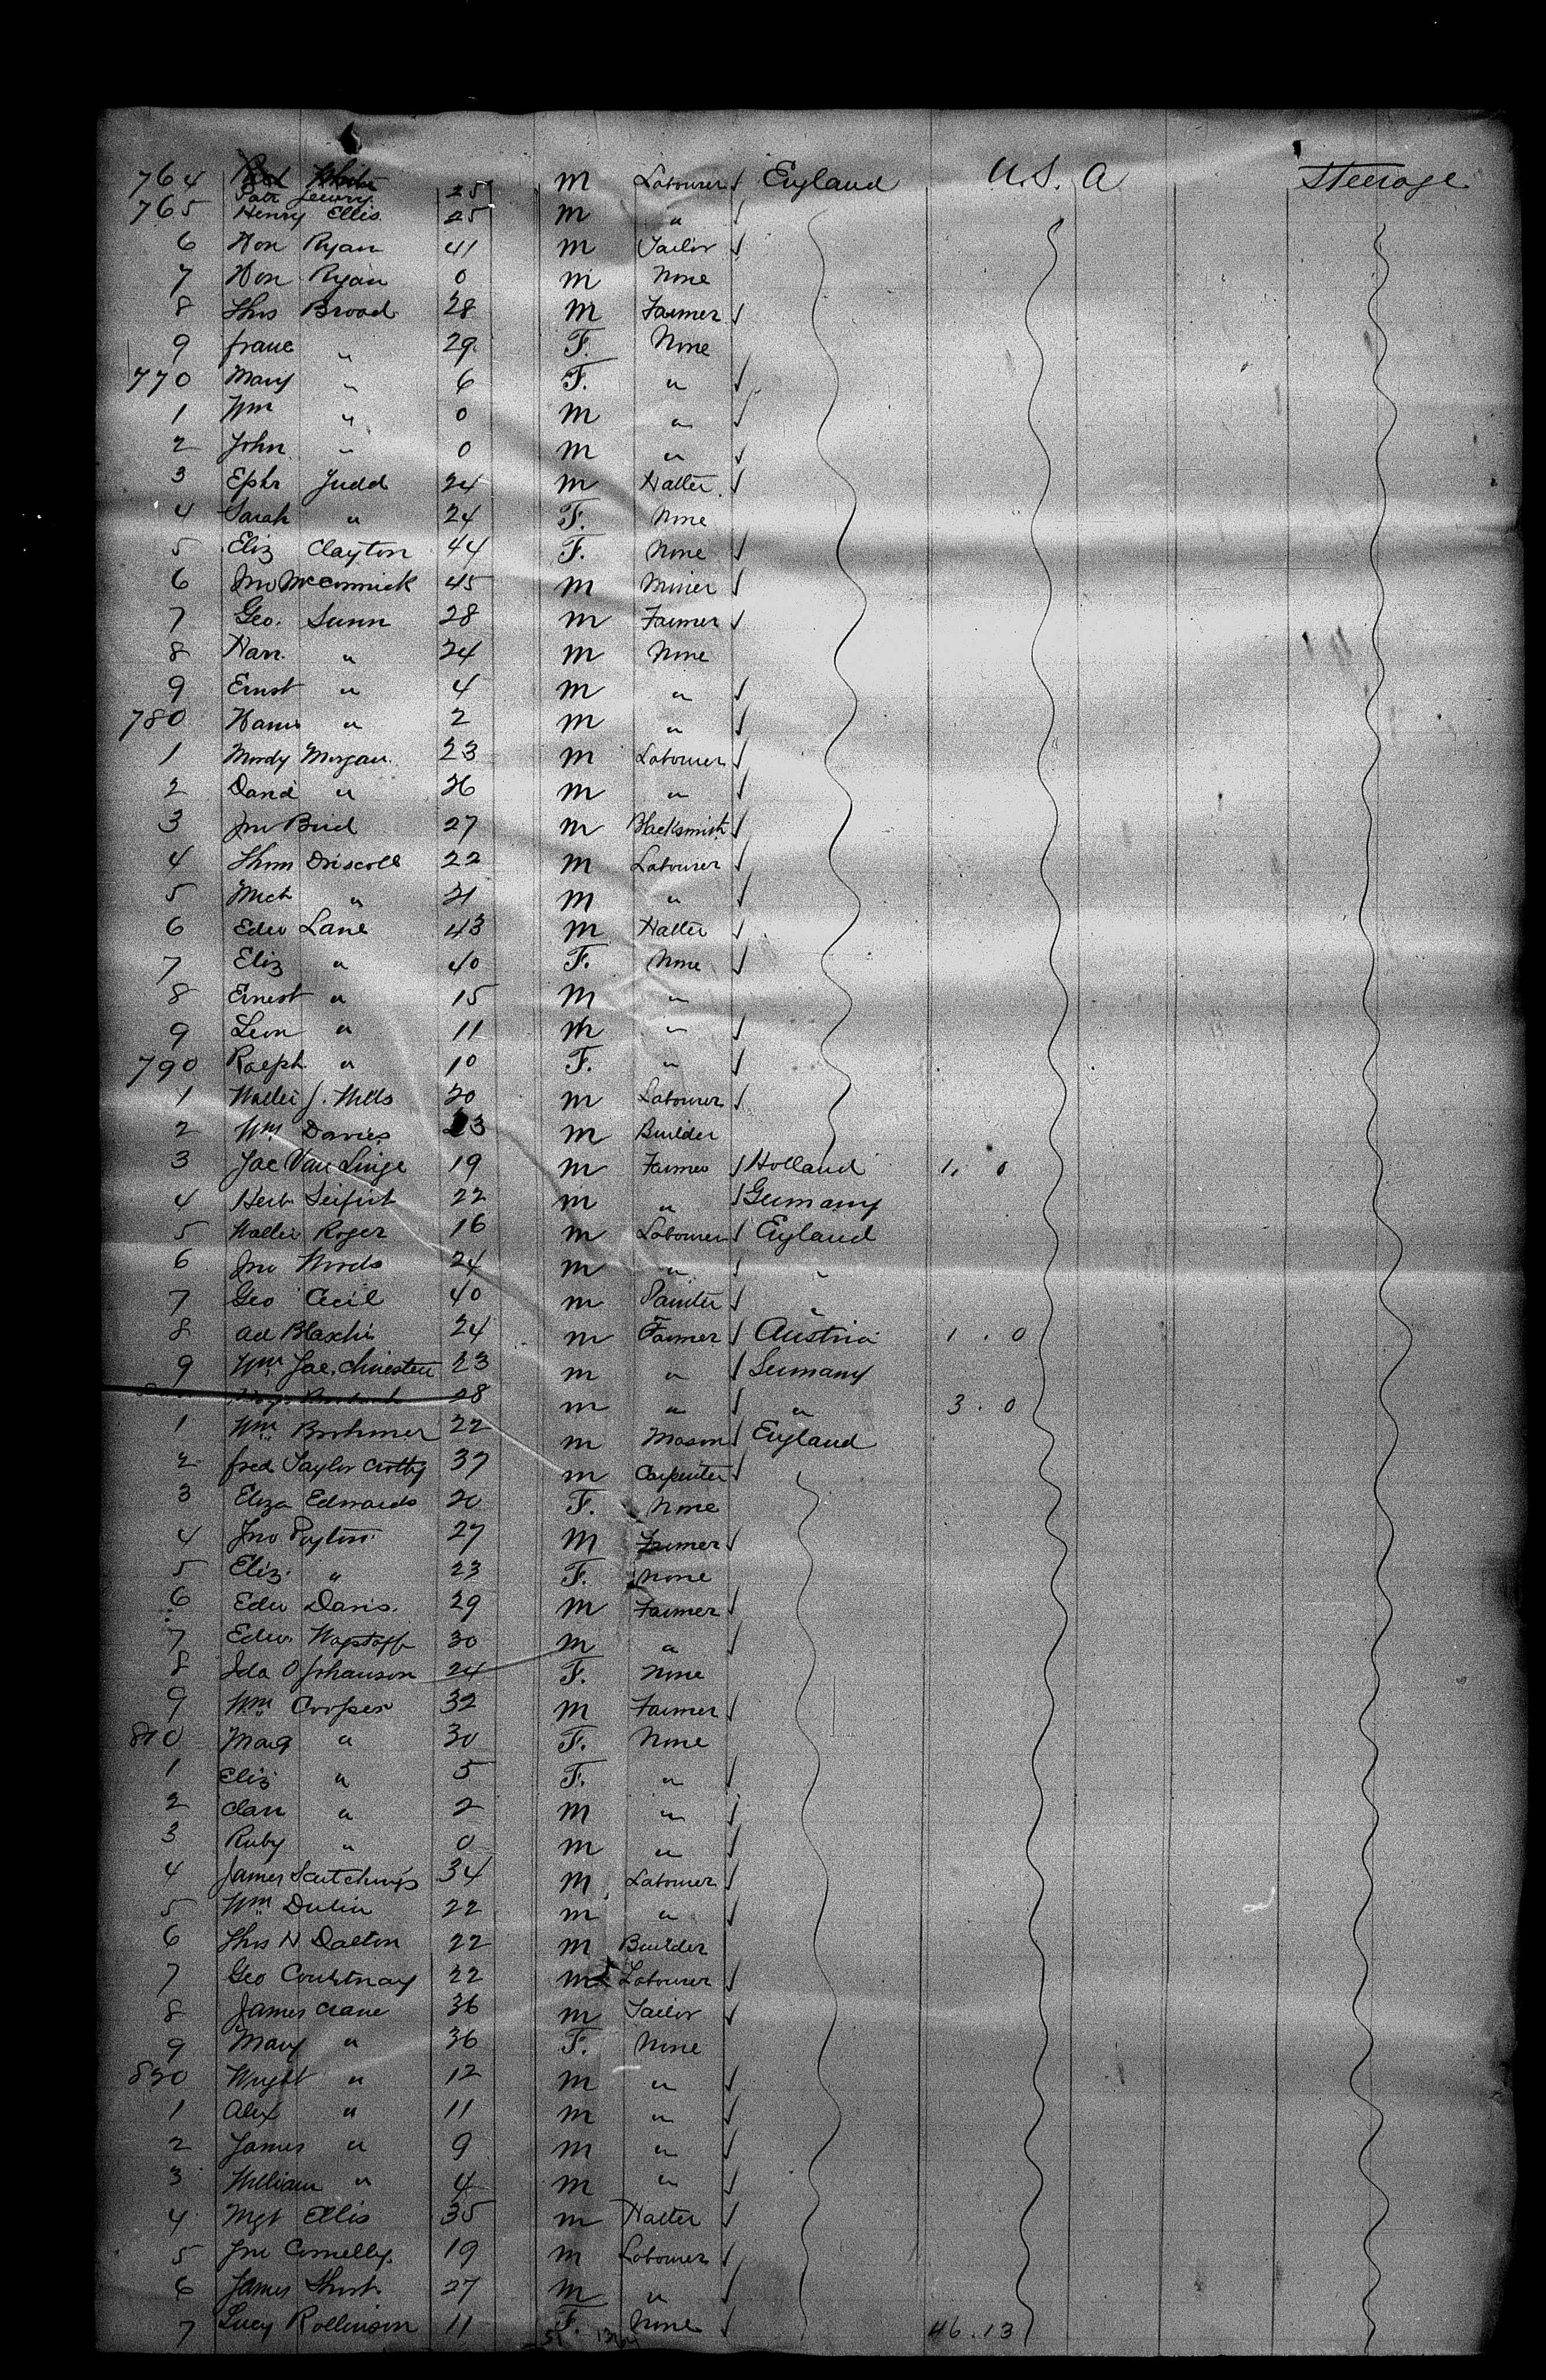 764 Patr Lowry 25 M Labourer √ England U.S.A Steerage
765 Henry Ellis 25 M " √
6 Hon Ryan 41 M Tailor √
7 Hon Ryan 0 M None
8 Thos Broad 28 M Farmer √
9 franc " 29 F. None
770 Mary " 6 F. " √
1 Wm " 0 M " √
2 John " 0 M " √
3 Ephr Judd 24 M Hatter √
4 Sarah " 24 F. None
5 Eliz Clayton 44 F. None √
6 Jno McCormick 45 M Miner √
7 Geo. Sunn 28 M Farmer √
8 Harr. " 24 M None
9 Ernst " 4 M " √
780 " 2 M " √
1 Mordy Morgan 23 M Labourer √
2 David " 26 M " √
3 Jno Bird 27 M Blacksmith √
4 Thom Driscoll 22 M Labourer √
5 Mich " 21 M " √
6 Edw Lane 43 M Hatter √
7 Eliz " 40 F. None √
8 Ernest " 15 M "
9 Leon " 11 M " √
790 Ralph " 10 F. " √
1 Walter J. Wells 20 M Labourer √
2 Wm Davies 23 M Builder
3 Jac Van Linge 19 M Farmer √ Holland 1. 0
4 Herb Seifert 22 M " √ Germany
5 Walter Roger 16 M Labourer √ England
6 Jno Words 24 M " √ "
7 Geo Cecil 40 M Painter √ "
8 Ad Blaschi 24 M Farmer √ Austria 1. 0
9 Wm Jac. 23 M " √ Germany
28 M " √ " 3. 0
1 Wm Brohmer 22 M Mason √ England
2 fred Taylor Crotty 37 M Carpenter √
3 Eliza Edwards 20 F. None
4 Jno Poyton 27 M Farmer √
5 Eliz. " 23 F. None
6 Edw Davis. 29 M Farmer √
7 Edw. Wagstaff 30 M " √
8 Ida O Johanson 24 F. None
9 Wm Cooper 32 M Farmer √
810 Marg " 30 F. None
1 Eliz " 5 F. " √
2 Clan " 2 M " √
3 Ruby " 0 M " √
4 James 34 M Labourer √
5 Wm Dulin 22 M " √
6 Thos H Dalton 22 M Builder
7 Geo Courtnay 22 M Labourer √
8 James Crane 36 M Tailor √
9 Mary " 36 F. None
820 Wright " 12 M " √
1 Alex " 11 M " √
2 James " 9 M " √
3 William " 4 M " √
4 Mgt Ellis 35 M Hatter √
5 Jno Connelly 19 M Labourer √
6 James 27 M " √
7 Lucy Rollinson 11 F. None √ 46.13